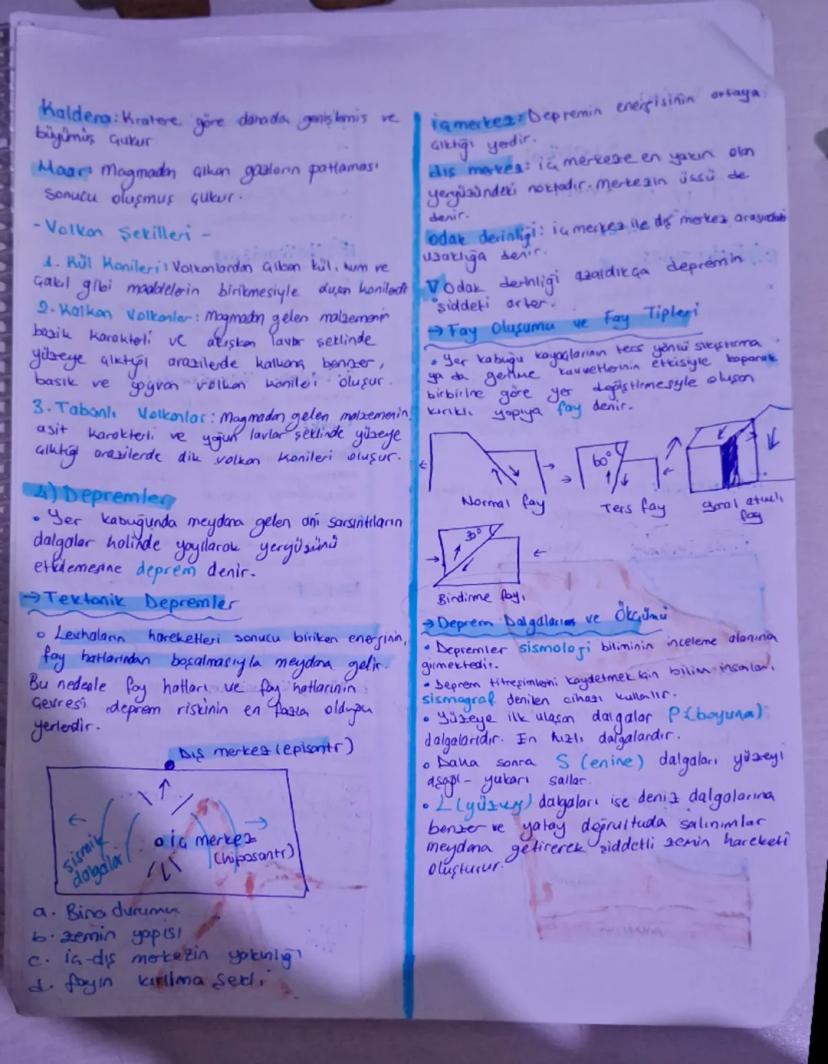 Kaldera: Kratere göre dahada genişlemiş ve
büyümüş çukur
Maar: Magmadan çıkan gazların patlaması
sonucu oluşmuş çukur.
- Volkan Şekilleri -
1. Kül Konileri: Volkanlardan çıkan kül, kum ve
çakıl gibi maddelerin birikmesiyle oluşan konilerdir
2. Kalkan Volkanlar: Magmadan gelen malzemenin
bazik karakterli ve akışkan lavlar şeklinde
yüzeye çıktığı arazilerde kalkana benzer,
basık ve yayvan volkan konileri oluşur.
3. Tabanlı Volkanlar: Magmadan gelen malzemenin
asit karakterli ve yoğun lavlar şeklinde yüzeye
çıktığı arazilerde dik volkan konileri oluşur.
4) Depremler
• Yer kabuğunda meydana gelen ani sarsıntıların
dalgalar halinde yayılarak yeryüzünü
etkilemesine deprem denir.
→ Tektonik Depremler
• Levhaların hareketleri sonucu biriken enerjinin,
fay hatlarından boşalmasıyla meydana gelir.
Bu nedenle fay hatları ve fay hatlarının
çevresi deprem riskinin en fazla olduğu
yerlerdir.
Dış merkez (episantr)
iç merkez
(hiposantr)
sismik
dalgalar
a. Bina durumu
b. zemin yapısı
c. iç-dış merkezin yakınlığı
d. fayın kırılma şekli
iç merkez: Depremin enerjisinin ortaya
çıktığı yerdir.
dış merkez: iç merkeze en yakın olan
yeryüzündeki noktadır. Merkezin üssü de
denir.
odak derinliği: iç merkez ile dış merkez arasındaki
uzaklığa denir.
∇ Odak derinliği azaldıkça depremin
şiddeti artar.
→ Fay Oluşumu ve Fay Tipleri
• Yer kabuğu kayaçlarının ters yönlü sıkıştırma
ya da gerilme kuvvetlerinin etkisiyle koparak
birbirine göre yer değiştirmesiyle oluşan
kırıklı yapıya fay denir.
60°
Normal fay
Ters fay
Yanal atımlı
fay
30°
Bindirme fayı
→ Deprem Dalgaları ve Ölçümü
• Depremler sismoloji biliminin inceleme alanına
girmektedir.
• Deprem titreşimlerini kaydetmek için bilim insanları
sismograf denilen cihazı kullanır.
• Yüzeye ilk ulaşan dalgalar P (boyuna)
dalgalarıdır. En hızlı dalgalardır.
• Daha sonra S (enine) dalgaları yüzeyi
aşağı - yukarı sallar.
• L (yüzey) dalgaları ise deniz dalgalarına
benzer ve yatay doğrultuda salınımlar
meydana getirerek şiddetli zemin hareketi
oluşturur.